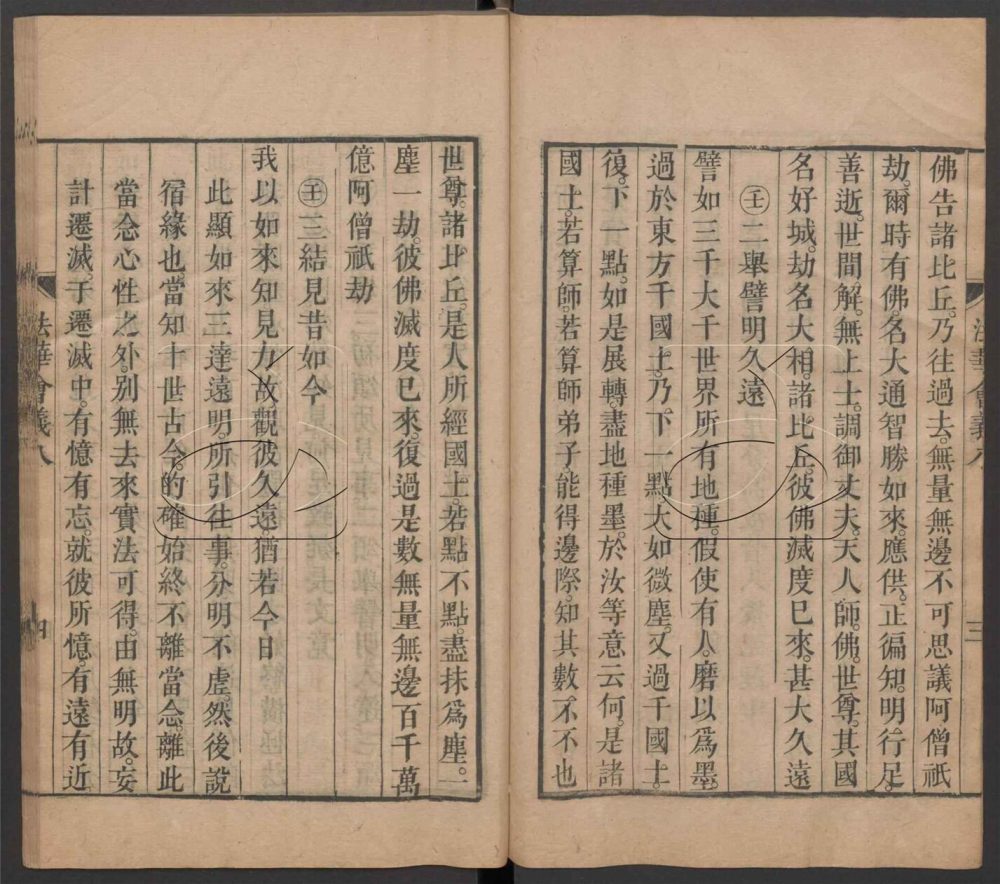 佛告諸比丘。乃往過去。無量無邊不可思議阿僧祇
劫。爾時有佛。名大通智勝如來。應供。正徧知。明行足。
善逝。世間解。無上士。調御丈夫。天人師。佛。世尊。其國
名好城。劫名大相。諸比丘。彼佛滅度已來。甚大久遠
㊂二舉譬明久遠
譬如三千大千世界所有地種。假使有人。磨以爲墨。
過於東方千國土。乃下一點。大如微塵。又過千國土。
復下一點。如是展轉。盡地種墨。於汝等意云何。是諸
國土。若算師。若算師弟子。能得邊際。知其數不。不也
三
世尊。諸比丘。是人所經國土。若點不點。盡抹爲塵。一
塵一劫。彼佛滅度已來。復過是數無量無邊百千萬
億阿僧祇劫
壬三結見昔如今
我以如來知見力故。觀彼久遠。猶若今日
此顯如來三達遠明。所引往事。分明不虛。然後說
宿緣也。當知十世古今。的確始終不離當念。離此
當念心性之外。別無去來實法可得。由無明故。妄
計遷滅。于遷滅中。有憶有忘。就彼所憶。有遠有近
法華會義八
四